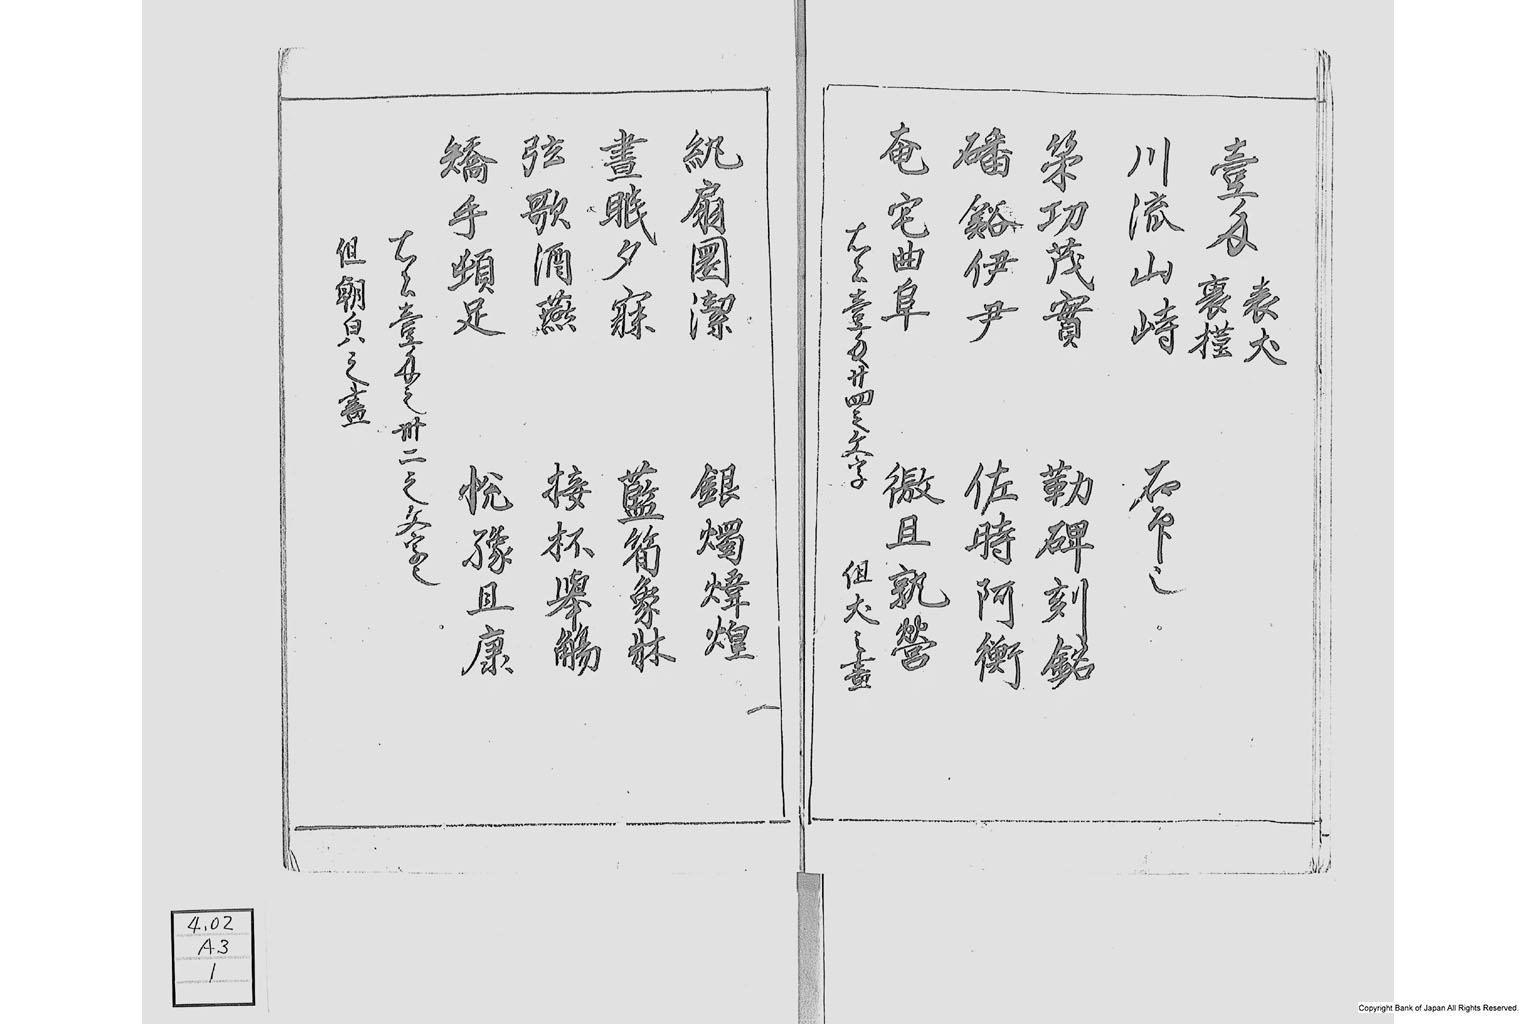 壹匁 表犬
裏槿
川流山峙 右印之
策功茂實 勒碑刻銘
磻谿伊尹 佐時阿衡
奄宅曲阜 微旦孰營
右者壹匁廿四之文字 但犬之畫
紈扇圎潔 銀燭煒煌
晝眠夕寐 藍筍象牀
弦歌酒讌 接杯舉觴
矯手頓足 悅豫且康
右者壹匁之卅二之文字也
但朝皃之畫
4.02
A3
1
Copyright Bank of Japan All Rights Reserved.